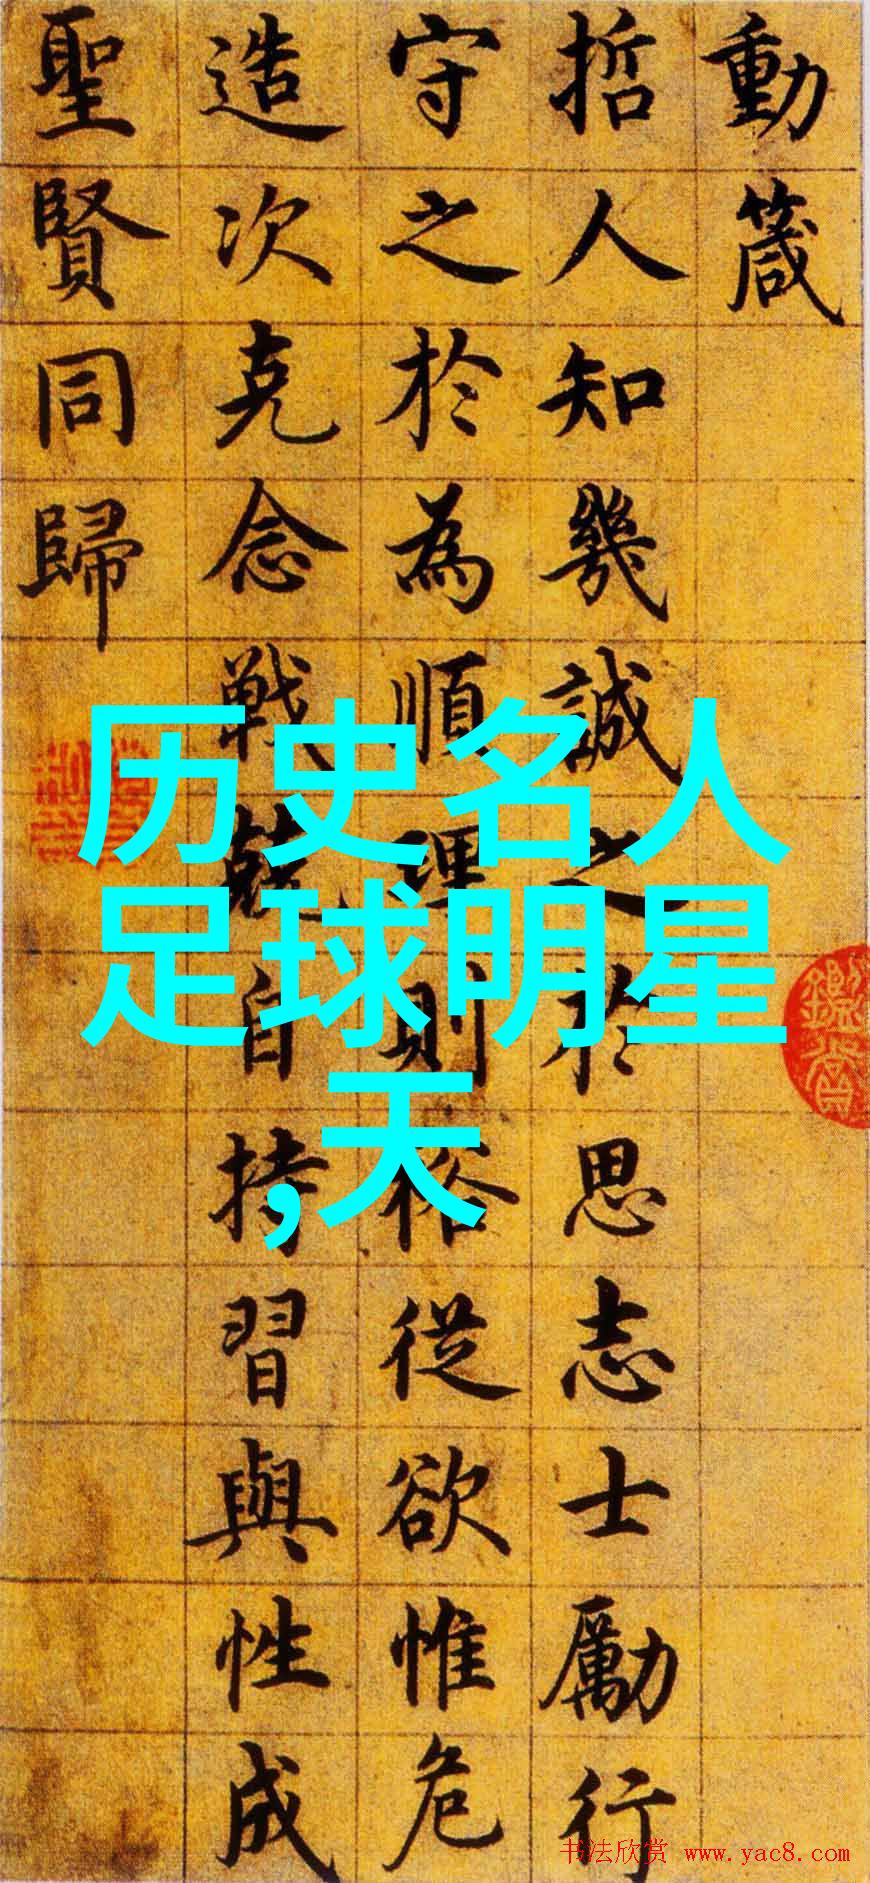 動箴
哲人知幾誠之於思志士勵行
守之於為順理則裕從欲惟危
造次克念戰兢自持習與性成
聖賢同歸
历史名人
足球明星
,天
书法欣赏 www.yac8.com